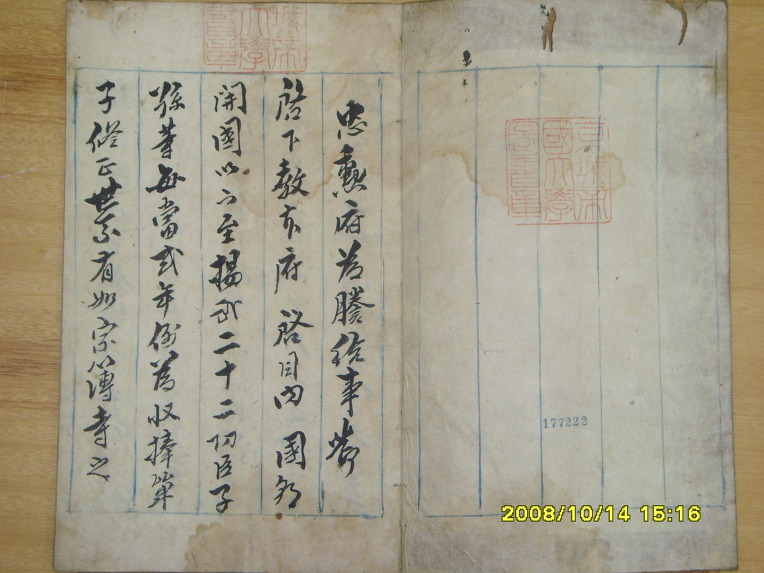 京城帝
國大學
圖書章
177222
忠勳府爲謄給事節
啓下敎本府 啓目內 國朝
開國以下至揚武二十二功臣子
孫等每當式年例爲收捧單
子修正世系有如宗簿寺之
2008/10/14 15:16